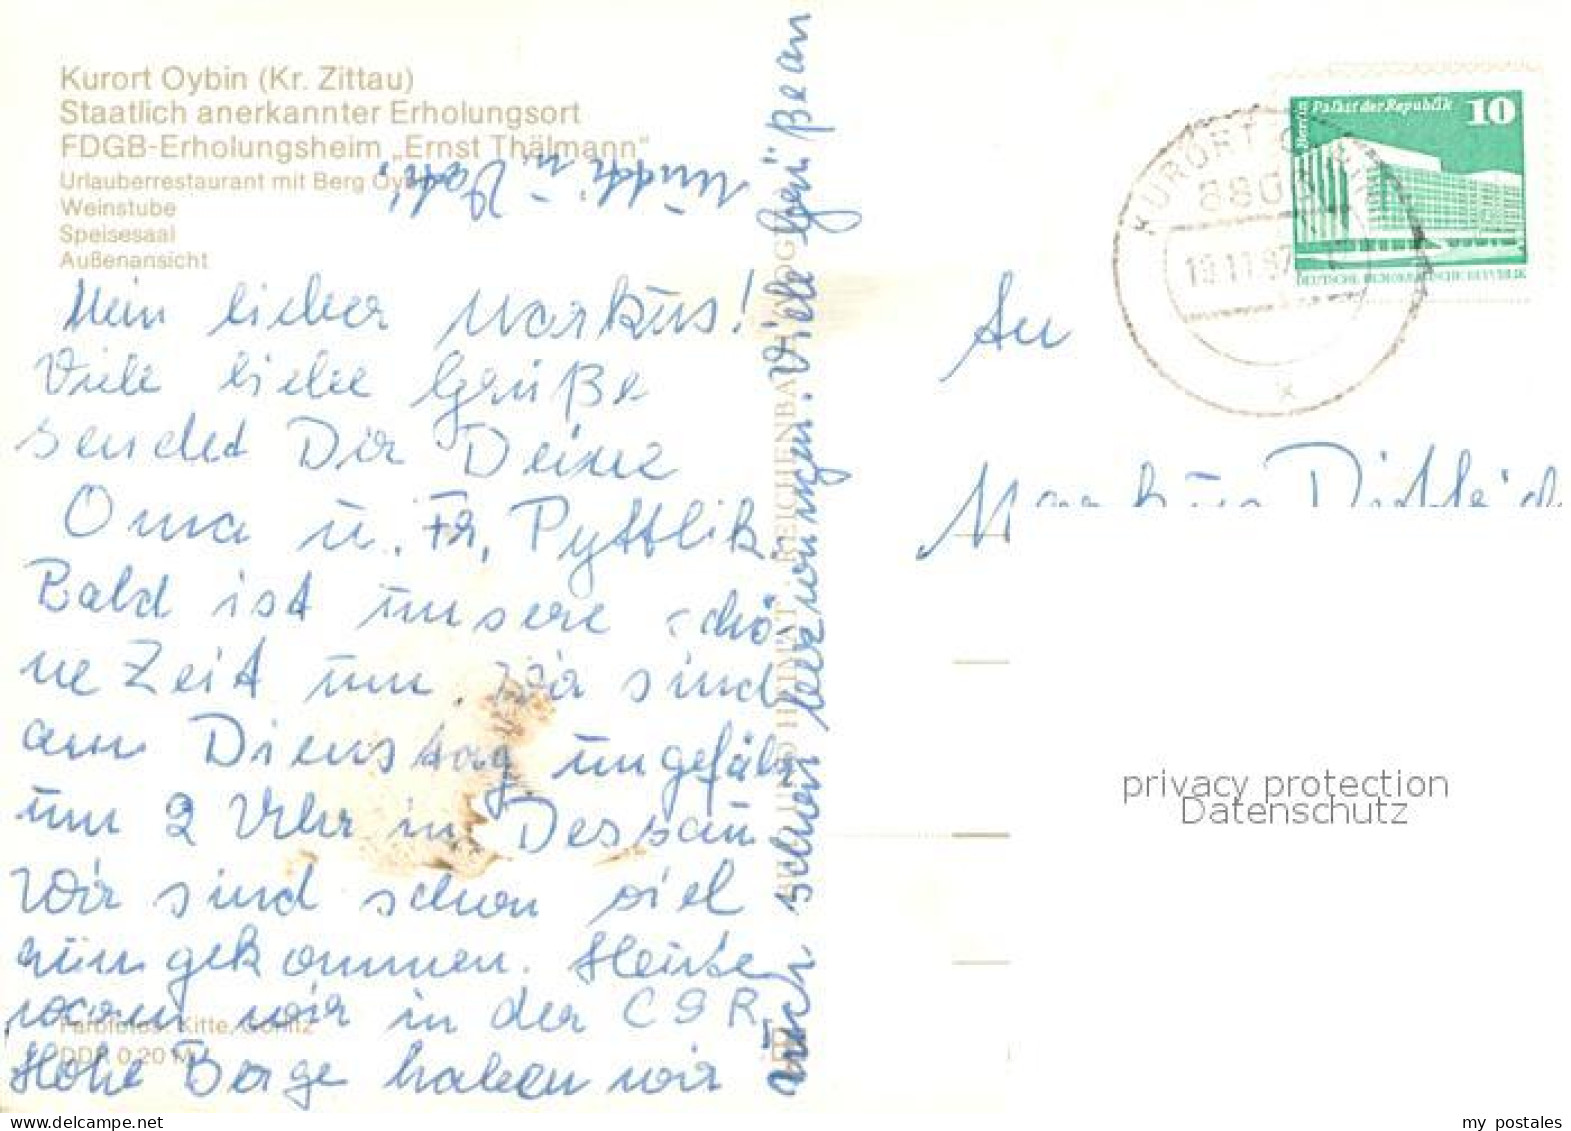 Kurort Oybin (Kr. Zittau)
Staatlich anerkannter Erholungsort
FDGB-Erholungsheim „Ernst Thälmann"
Urlauberrestaurant mit Berg Oybin
Weinstube
Speisesaal
Außenansicht
Mein lieber Markus!
Viele liebe Grüße
sendet Dir Deine
Oma u. Fr. Pyttlik.
Bald ist unsere schö
ne Zeit um. Wir sind
am Dienstag ungefähr
um 2 Uhr in Dessau
Wir sind schon viel
rumgekommen. Heute
waren wir in der CSR.
Hohe Berge haben wir
auch schon bezwungen. Viele Grüße an
Mutti u. Vati
Farbfotos: Kitte, Görlitz
DDR 0,20 M
BILD UND HEIMAT REICHENBACH (VOGTL)
KURORT OYBIN
8806
Berlin Palast der Republik 10
DEUTSCHE DEMOKRATISCHE REPUBLIK
An
Markus
privacy protection
Datenschutz
my postales